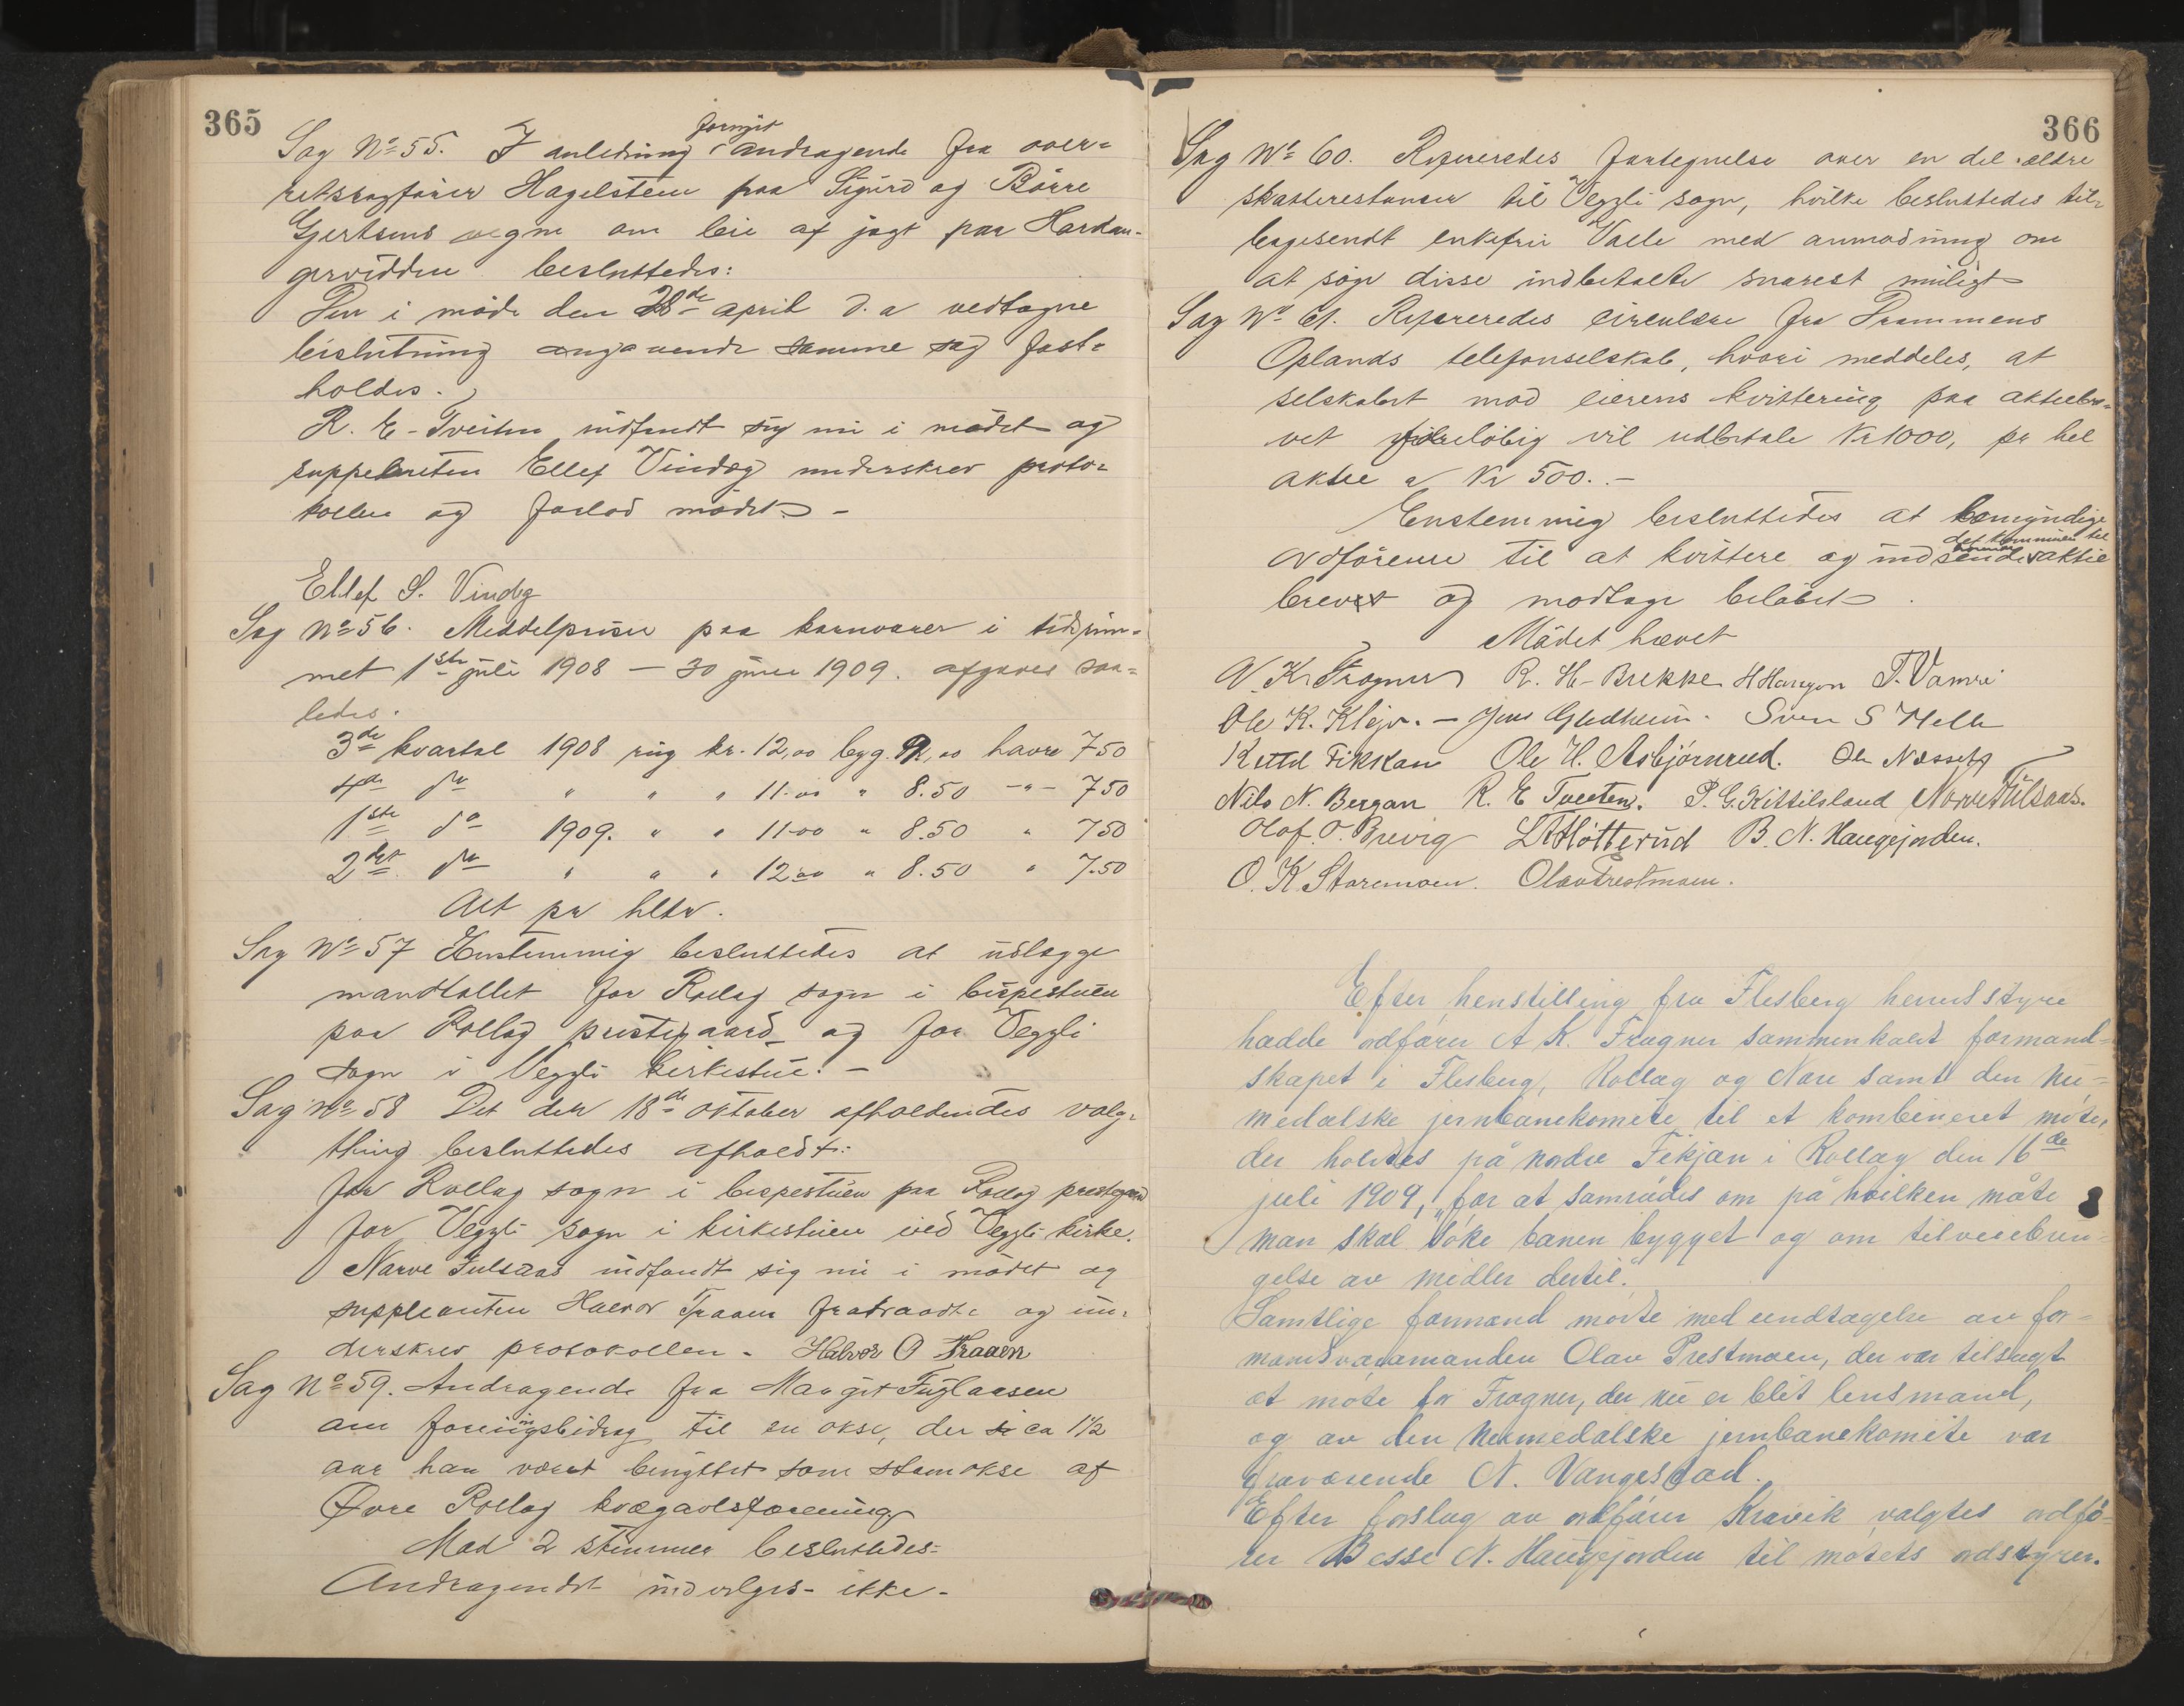 365
Sag No 55. I anledning fornyet andragende fra over-
retssagfører Hagelsteen paa Sigurd og Børre
Gjertsens vegne om leie af jagt paa Hardan-
gervidden besluttedes:
Den i møde den 28de april d. a vedtagne
beslutning angaaende samme sag fast-
holdes.
R. E. Tveiten indfandt sig nu i mødet og
suppleanten Ellef Vindeg underskrev proto-
kollen og forlod mødet. -
Ellef S. Vindeg
Sag No 56. Middelpriser paa kornvarer i tidsrum-
met 1ste juli 1908 — 30 juni 1909. afgaves saa-
ledes.
3de kvartal 1908 rug kr. 12,00 byg. 9,00 havre 750
4de do " " " 11.00 " 8.50 -"- 750
1ste do 1909. " " 11.00 " 8.50 " 750
2det do " " " 12.00 " 8.50 " 7.50
Alt pr hltr.
Sag No 57 Enstemmig besluttedes at udlægge
mandtallet for Rollag sogn i bispestuen
paa Rollag prestegaard og for Veggli
sogn i Veggli kirkestue. -
Sag No 58 Det den 18de oktober afholdendes valg-
thing besluttedes afholdt:
for Rollag sogn i bispestuen paa Rollag prestegaard
for Veggli sogn i kirkestuen ved Veggli kirke.
Narve Julsaas indfandt sig nu i mødet og
suppleanten Halvor Traaen fratraadte og un-
derskrev protokollen. Halvor O Traaen
Sag No 59. Andragende fra Margit Fuglaasen
om foringsbidrag til en okse, der i ca 1½
aar har været benyttet som stamokse af
Øvre Rollag kvægavlsforening.
Mod 2 stemmer besluttedes:
Andragendet indvilges ikke.
366
Sag No 60. Refereredes fortegnelse over en del ældre
skatterestancer til Veggli sogn, hvilke besluttedes til-
bagesendt enkefru Valle med anmodning om
at søge disse indbetalte snarest muligt
Sag No 61. Refereredes cirkulære fra Drammens
Oplands telefonselskab, hvori meddeles, at
selskabet mod eierens kvittering paa aktiebre-
vet foreløbig vil udbetale Kr 1000, pr hel
aktie a Kr 500. -
Enstemmig besluttedes at bemyndige
ordføreren til at kvittere og indsende det kommunen til aktie
brevet og modtage beløbet.
Mødet hævet
A. K. Fragner R. H. Brekke H Haugon T. Vamri
Ole K. Klejv. — Jens Gladheim. Sven S Helle
Kittil Fikkan Ole H. Asbjørnrud. Ole Næsset
Nils N. Bergan R. E Tveiten. P. G. Kittilsland Narve Julsaas.
Olof. O. Brevig L A Høtterud B. N. Haugejorden.
O. K Staremoen. Olav Prestmoen.
Efter henstilling fra Flesberg herredsstyre
hadde ordfører A K. Fragner sammenkaldt formand-
skapet i Flesberg, Rollag og Nore samt den Nu-
medalske jernbanekomite til et kombineret møte,
der holdtes på nordre Fikjan i Rollag den 16de
juli 1909, „for at samrådes om på hvilken måte
man skal søke banen bygget og om tilveiebrin-
gelse av midler dertil."
Samtlige formænd møtte med undtagelse av for-
mandsvaramanden Olav Prestmoen, der var tilsagt
at møte for Fragner, der nu er blit lensmand,
og av den Numedalske jernbanekomite var
fraværende N. Vangestad.
Efter forslag av ordfører Kravik valgtes ordfø-
rer Besse N. Haugejorden til møtets ordstyrer.